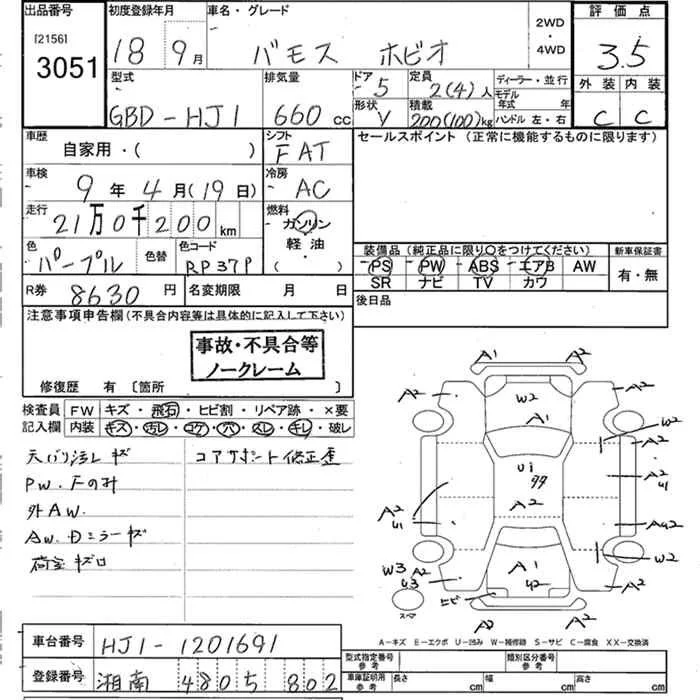 出品番号 初度登録年月 車名・グレード 評価点
[2156] 3051 18 9月 バモス ホビオ 2WD・4WD 3.5
型式 排気量 ドア 定員 ディーラー・並行 外装 内装
GBD-HJ1 660 cc 5 2(4)人 モデル年式 年 C C
形状 V 積載 200(100)kg ハンドル 左・右
車歴 シフト セールスポイント (正常に機能するものに限ります)
自家用・( ) FAT
車検 冷房
9年 4月(19日) AC
走行 燃料
21万0千200km ガソリン
軽油・
( )
色 色替 色コード 装備品 (純正品に限り○をつけてください) 新車保証書
パープル RP37P PS PW ABS エアB AW 有・無
SR ナビ TV カワ
R券 8630円 名変期限 月 日 後日品
注意事項申告欄(不具合内容等は具体的に記入して下さい)
事故・不具合等
ノークレーム
修復歴 有〔箇所 〕
検査員 FW キズ・飛石・ヒビ割・リペア跡・×要
記入欄 内装 キズ・汚レ・コゲ・穴・スレ・キレ・破レ
コアサポート修正歪
PW.Fのみ
外AW.
AW.Dミラーキズ
A1 A2
A2 W2 A2
A1 W2
A2
U1 A2
99 U1
A2 A2
U1 AU2
W3 A2 A1 W2
U3 U2
ヒビ A2
スペア A2
A-キズ E-エクボ U-凹み W-補修跡 S-サビ C-腐食 XX-交換済
車台番号 HJ1-1201691
型式指定番号 参考 類別区分番号 参考
登録番号 湘南 480 5 802
車庫証明用 参考 長さ cm 幅 cm 高さ cm